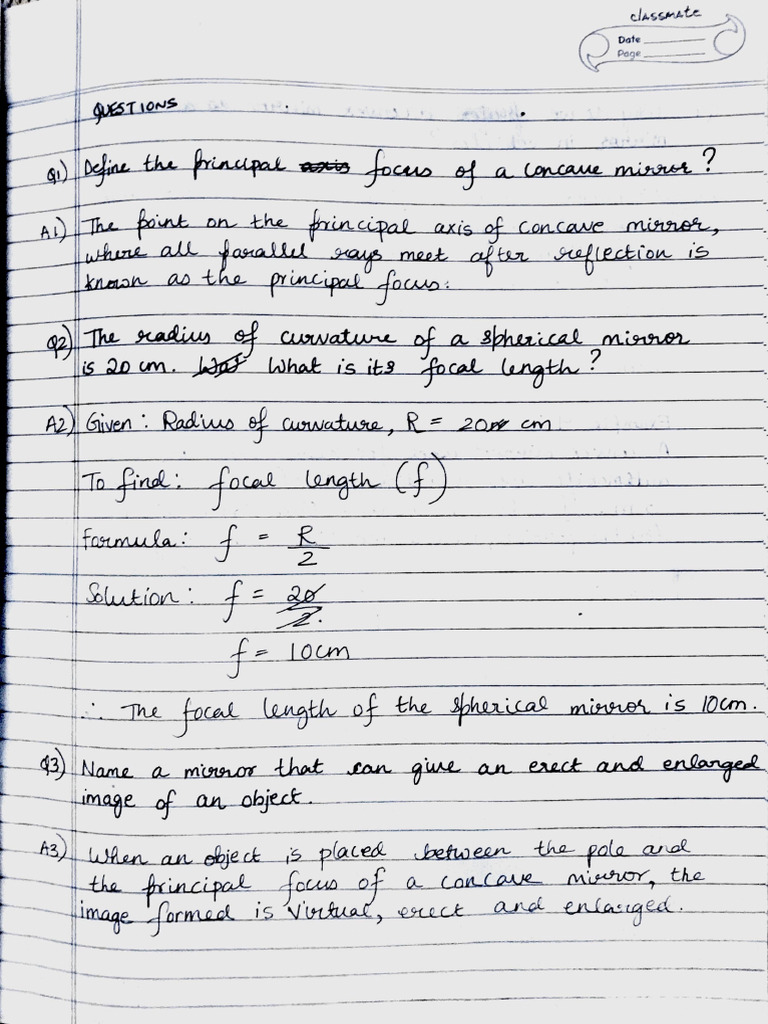 classmate
Date
Page
QUESTIONS
Q1) Define the principal axis focus of a concave mirror?
A1) The point on the principal axis of concave mirror,
where all parallel rays meet after reflection is
known as the principal focus.
Q2) The radius of curvature of a spherical mirror
is 20 cm. What is its focal length?
A2) Given: Radius of curvature, R = 20 cm
To find: focal length (f)
Formula: f = R
2
Solution: f = 20
2
f = 10cm
∴ The focal length of the spherical mirror is 10cm.
Q3) Name a mirror that can give an erect and enlarged
image of an object.
A3) When an object is placed between the pole and
the principal focus of a concave mirror, the
image formed is virtual, erect and enlarged.